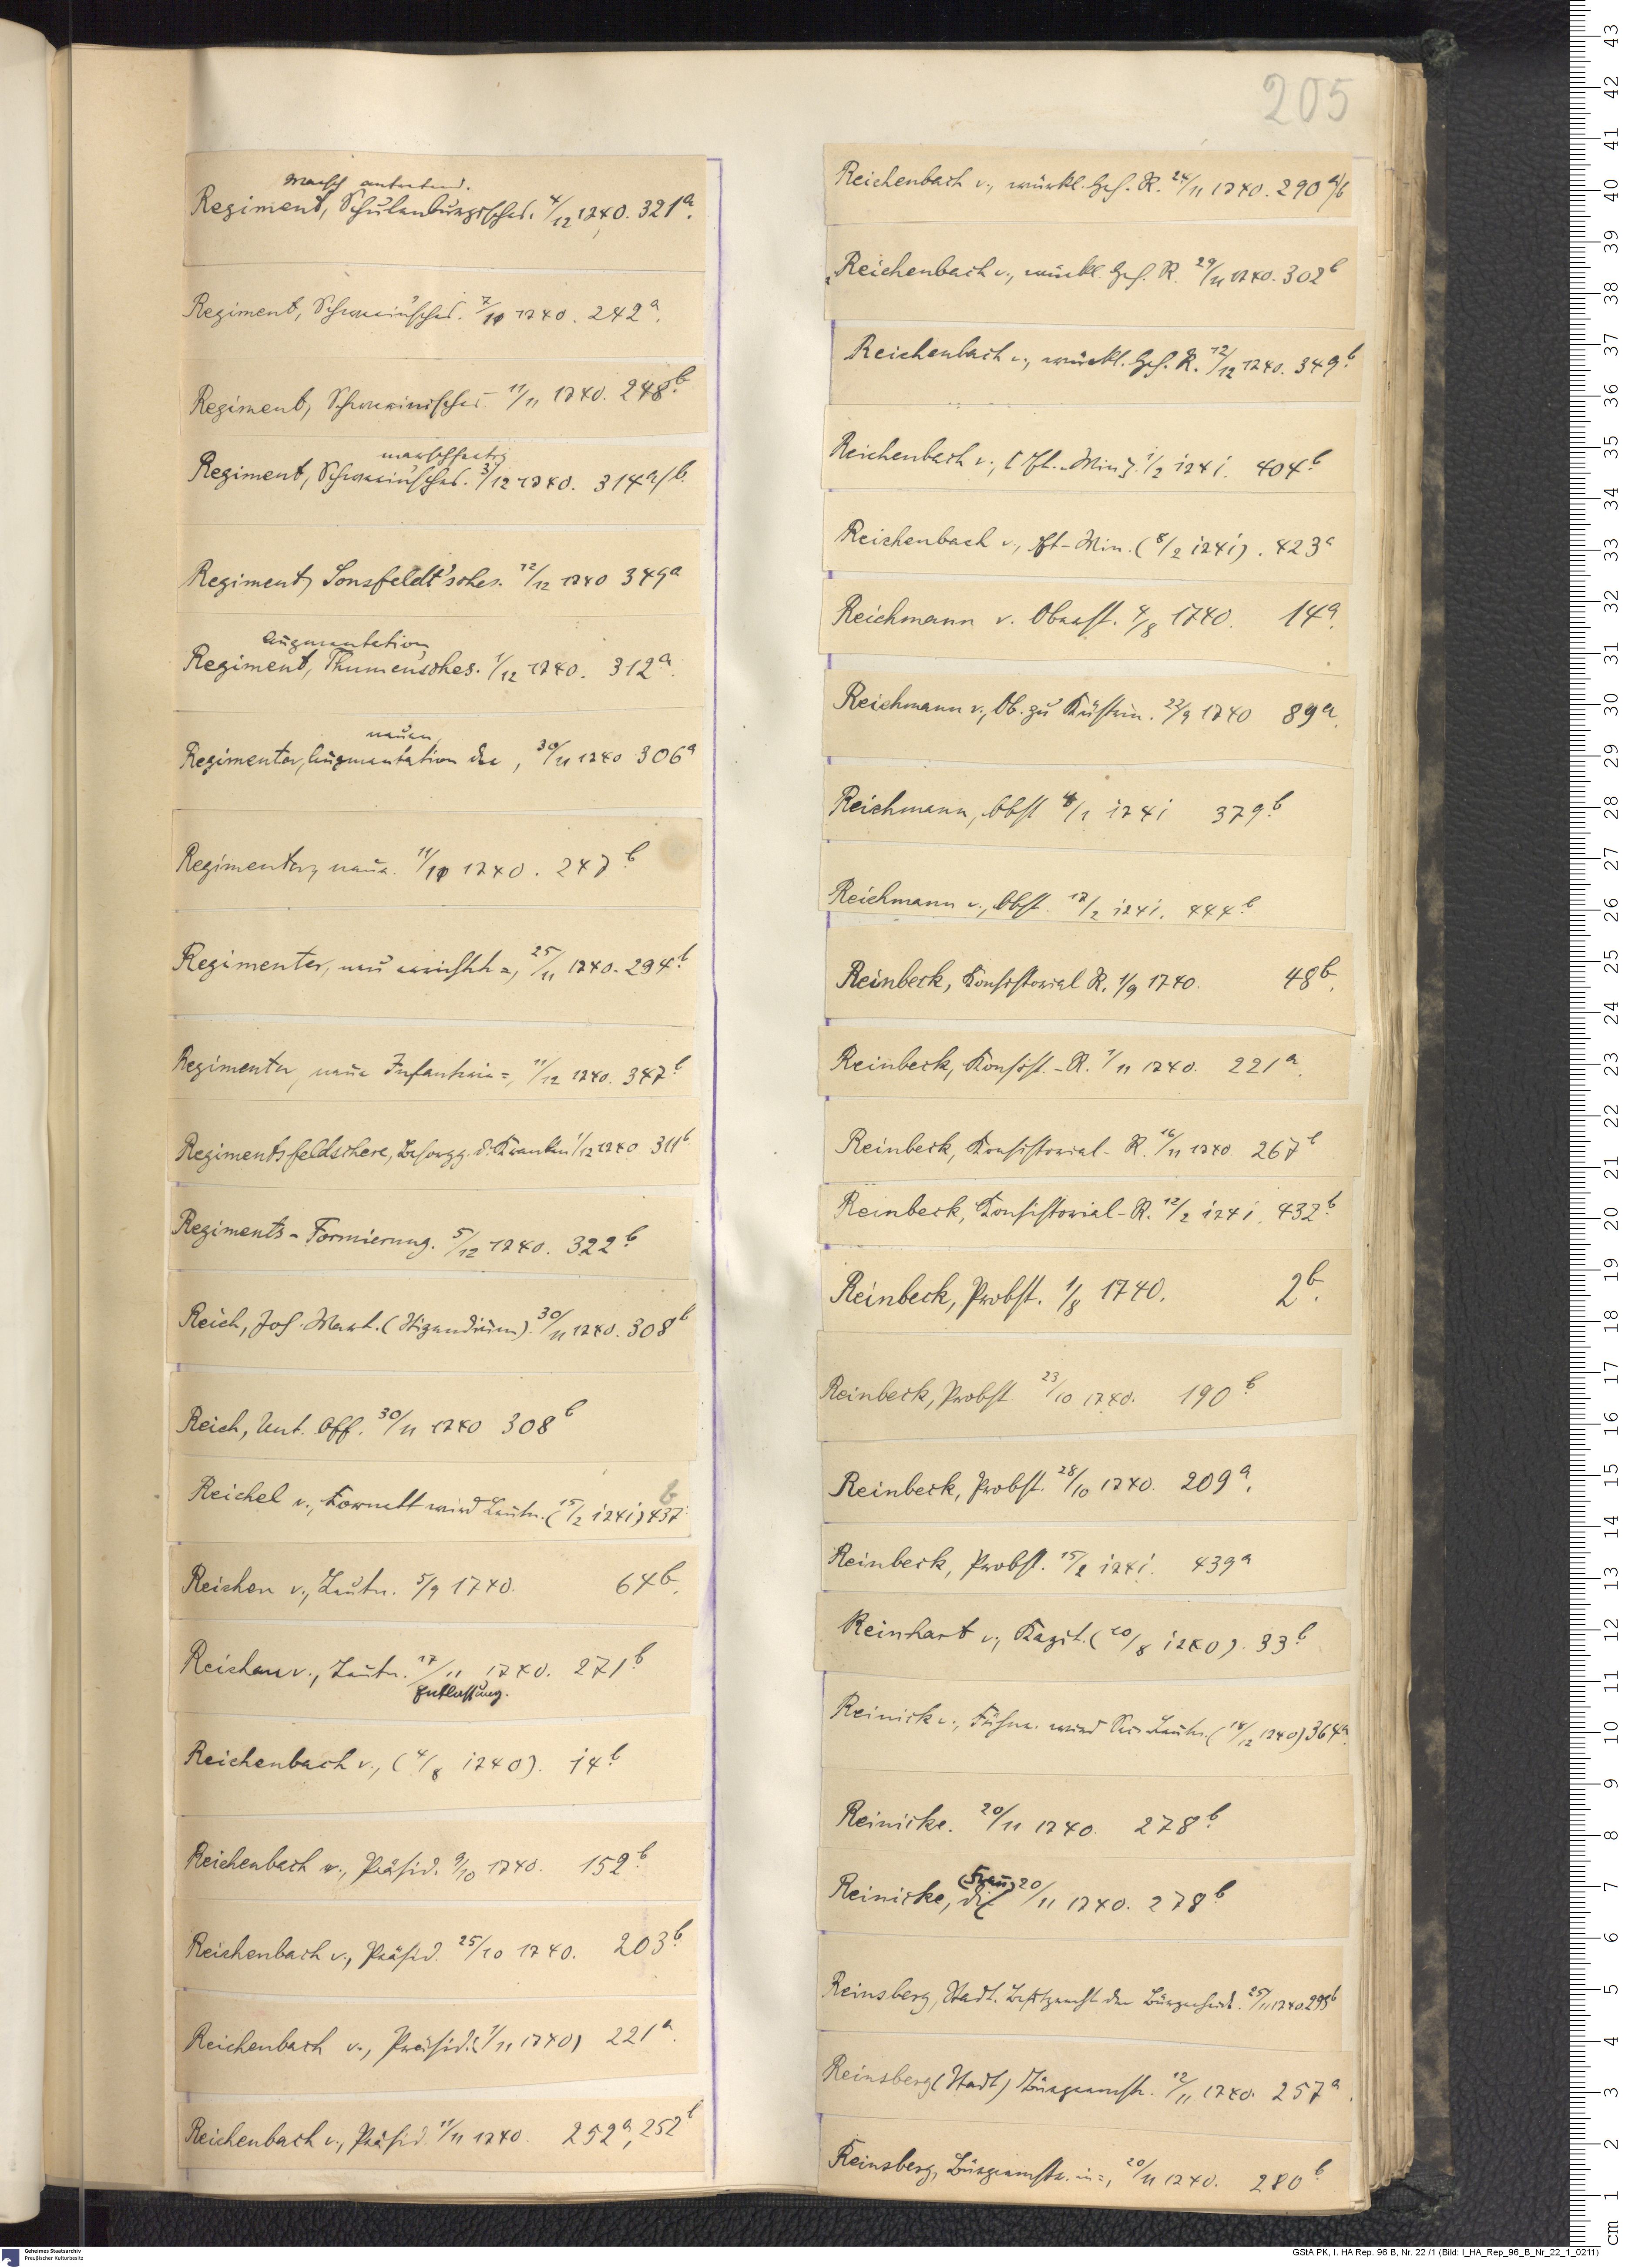 205
Marsch antretend.
Regiment, Schulenburgisches. 4/12 1740. 321a.
Regiment, Schwerin'sches. 7/11 1740. 242a.
Regiment, Schwerinisches 11/11 1740. 248b.
marschfertig
Regiment, Schwerin'sches. 3/12 1740. 314a/b.
Regiment, Sonsfeldt'sches. 12/12 1740 349a
Augmentation,
Regiment, Thumen'sches. 1/12 1740. 312a.
neuen
Regimenter, Augmentation der, 30/11 1740 306a
Regimenter, neue. 11/11 1740. 247b.
Regimenter, neu errichtete=, 25/11 1740. 294b.
Regimenter, neue Infanterie=, 11/12 1740. 347b.
Regimentsfeldschere, Besorgg. d. Kranken 1/12 1740 311b
Regiments-Formierung. 5/12 1740. 322b
Reich, Joh. Mart. 30/11 1740. 308b
Reich, Unt. Off. 30/11 1740 308b
Reichel v., Kornett wird Leutn. (15/2 1741) 437b
Reichen v., Leutn. 5/9 1740. 64b.
Reichen v., Leutn. 17/11 1740. 271b
Entlassung.
Reichenbach v., (4/8 1740). 14b
Reichenbach v., Präsid. 9/10 1740. 152b.
Reichenbach v., Präsid. 25/10 1740. 203b.
Reichenbach v., Präsid. (1/11 1740) 221a.
Reichenbach v., Präsid. 11/11 1740. 252a, 252b
Reichenbach v., würkl. Geh. R. 24/11 1740. 290a/b
Reichenbach v., würkl. Geh. R. 29/11 1740. 302b
Reichenbach v., würkl. Geh. R. 12/12 1740. 349b.
Reichenbach v., (Et.-Min.). 1/2 1741. 404b
Reichenbach v., Et-Min. (8/2 1741). 423a
Reichmann v. Oberst. 4/8 1740. 14a.
Reichmann v., Ob. zu Küstrin. 22/9 1740 89a.
Reichmann, Obst 8/1 1741 379b.
Reichmann v., Obst. 17/2 1741. 444b.
Reinbeck, Konsistorial R. 1/9 1740. 48b.
Reinbeck, Konsist.-R. 1/11 1740. 221a.
Reinbeck, Konsistorial-R. 16/11 1740. 267b
Reinbeck, Konsistorial-R. 12/2 1741. 432b.
Reinbeck, Probst. 1/8 1740. 2b.
Reinbeck, Probst 23/10 1740. 190b.
Reinbeck, Probst. 28/10 1740. 209a.
Reinbeck, Probst. 15/2 1741. 439a
Reinhart v., Kapit. (20/8 1740). 33b.
Reinick v., Fähnr. wird Sec. Leutn. (18/12 1740) 364a.
Reinicke. 20/11 1740. 278b.
(Frau)
Reinicke, die 20/11 1740. 278b
Reinsberg, Stadt. der Bürgerschaft. 25/11 1740 295b
Reinsberg (Stadt) Bürgermstr. 12/11 1740. 257a.
Reinsberg, Bürgermstr. in=, 20/11 1740. 280b
43
42
41
40
39
38
37
36
35
34
33
32
31
30
29
28
27
26
25
24
23
22
21
20
19
18
17
16
15
14
13
12
11
10
9
8
7
6
5
4
3
2
1
cm
Geheimes Staatsarchiv
Preußischer Kulturbesitz
GStA PK, I. HA Rep. 96 B, Nr. 22 /1 (Bild: I_HA_Rep_96_B_Nr_22_1_0211)